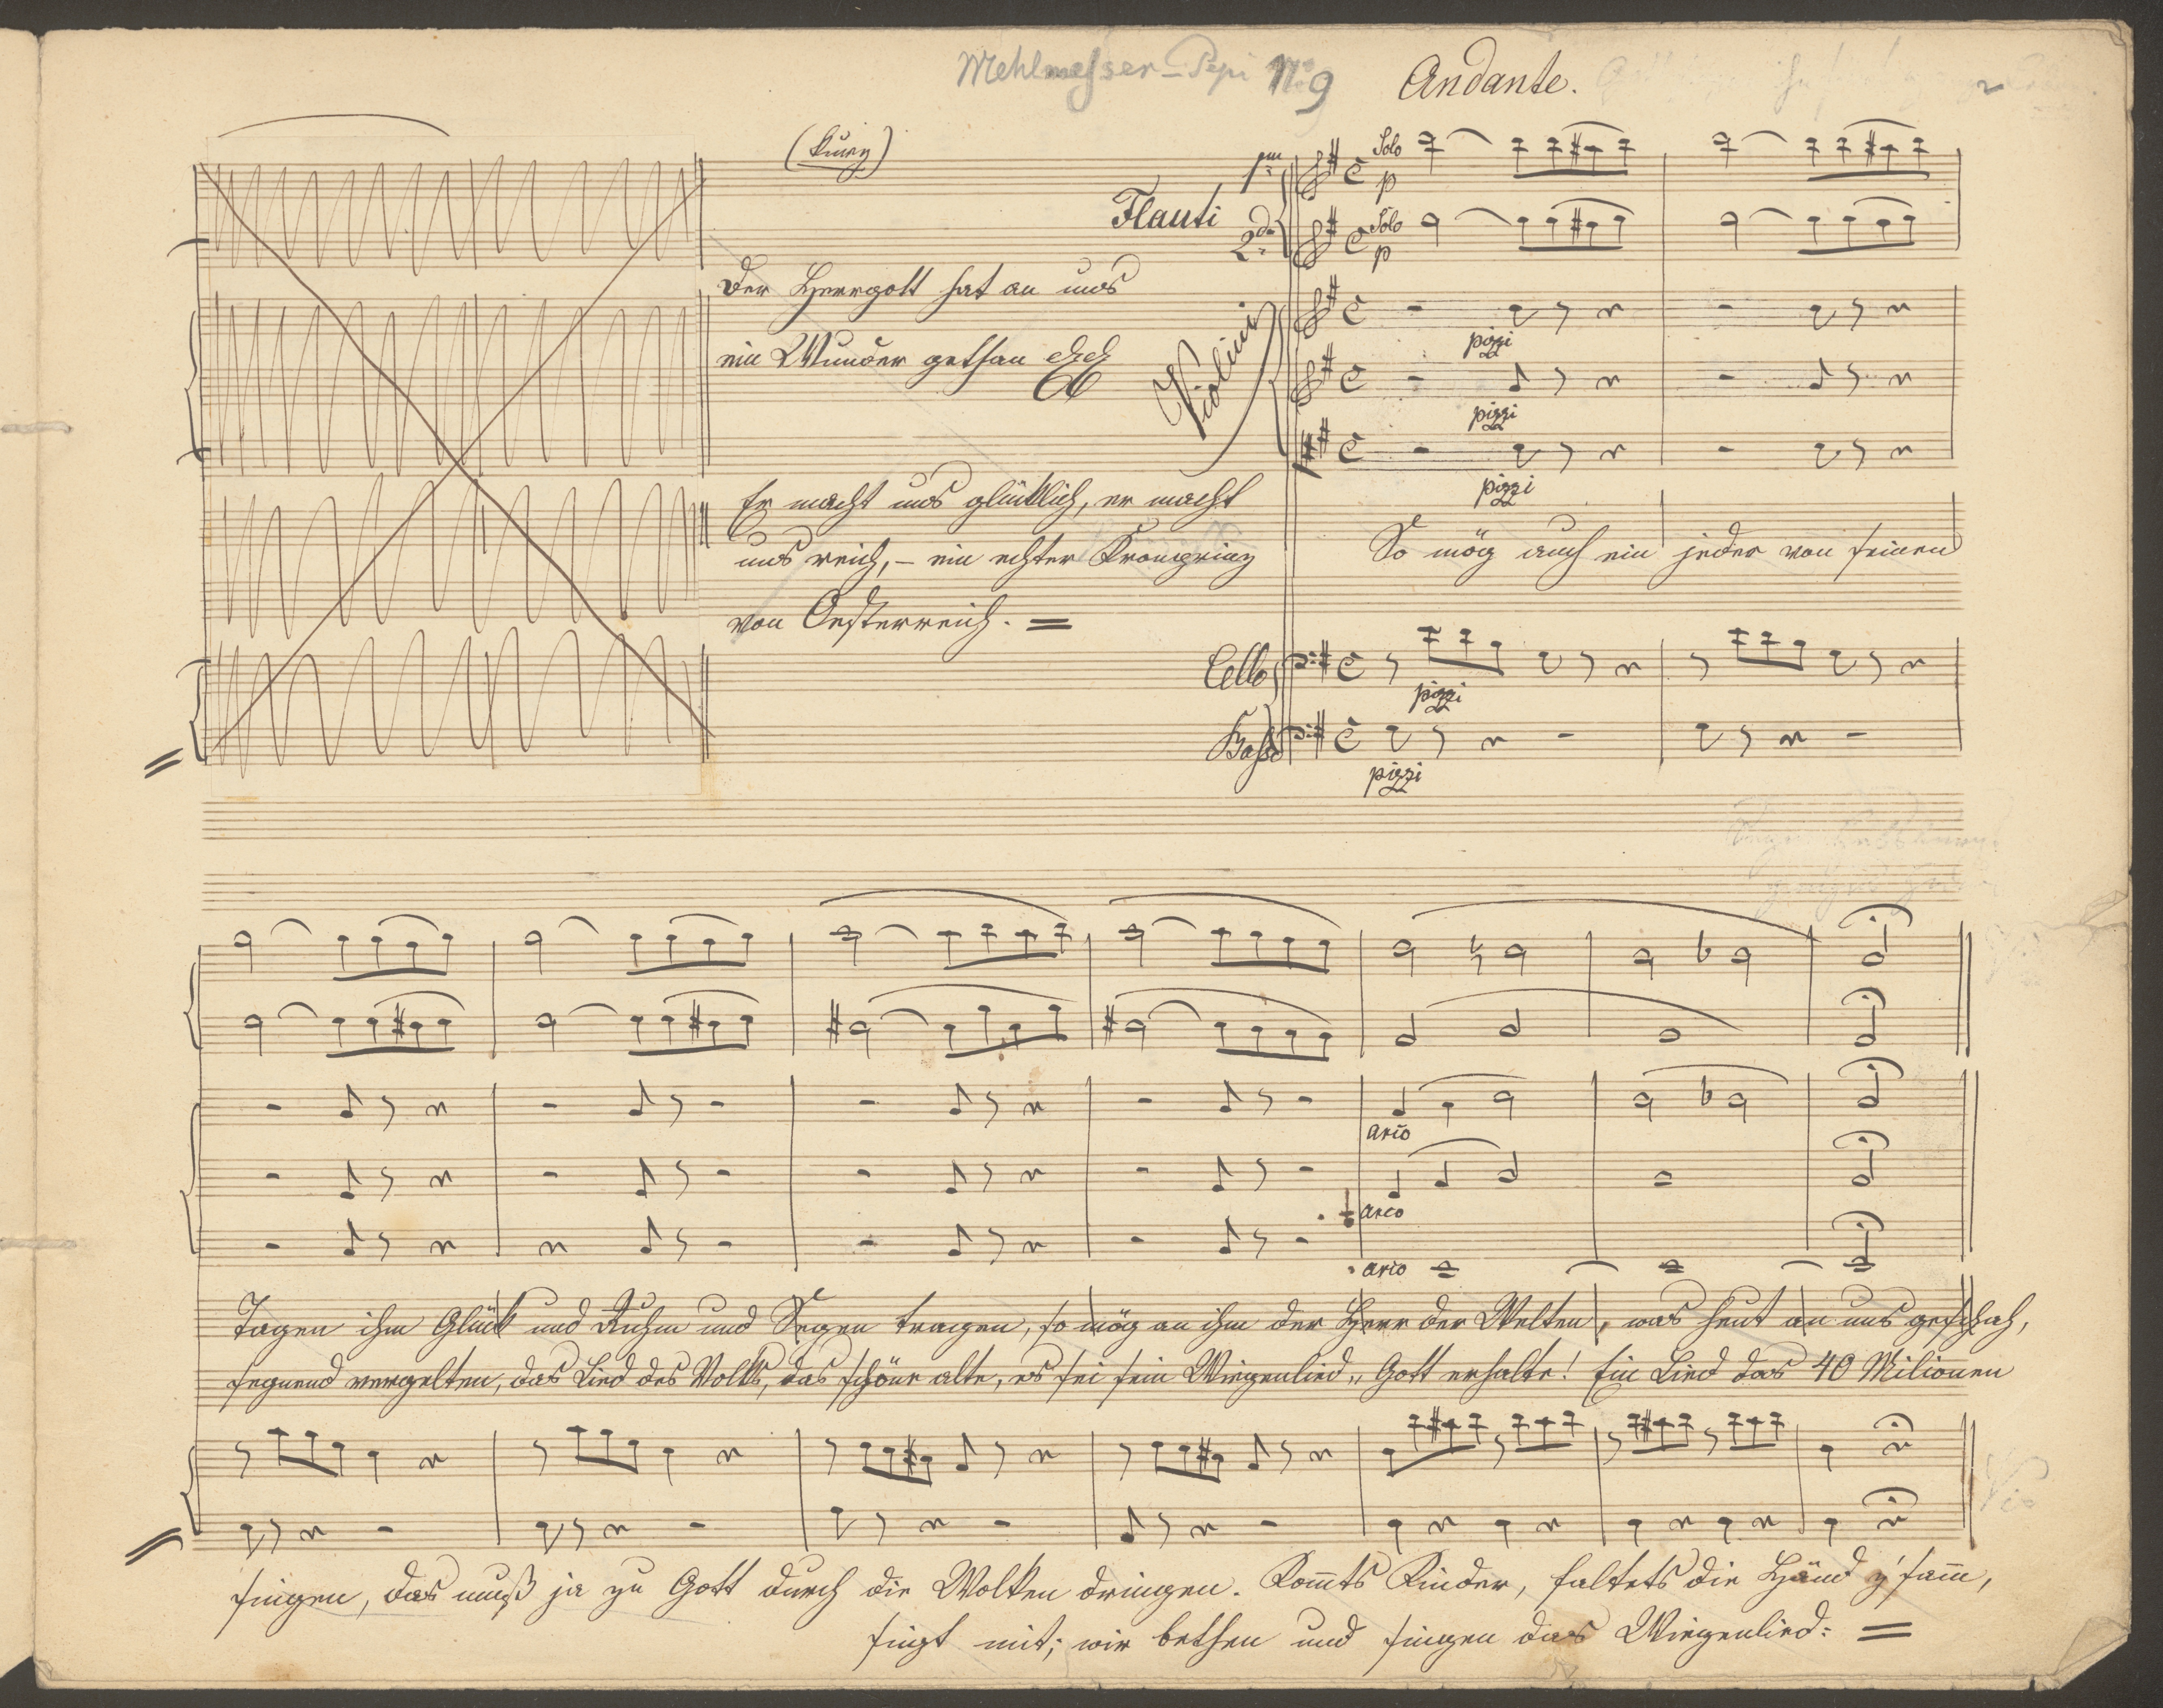 Mehlmesser-Pepi No 9 Andante.
2
(Kurz)
1mo Solo p
Flauti
2do Solo p
Der Herrgott hat an uns
ein Wunder gethan
Violini
pizzi
pizzi
pizzi
Er macht uns glücklich, er macht
uns reich, – ein echter Kronprinz
von Oesterreich. =
So mög auch ein jeder von seinen
Cello
pizzi
Basso
pizzi
arco
arco
arco
Tagen ihm Glück und Ruhm und Segen tragen, so mög an ihm der Herr der Welten, was heut an uns geschah,
segnend vergelten, das Lied des Volks, das schöne alte, es sei sein Wiegenlied „Gott erhalte! Ein Lied das 40 Milionen
singen, das muß ja zu Gott durch die Wolken dringen. Kom̅ts Kinder, faltets die Händ z'sam̅,
singt mit; wir bethen und singen das Wiegenlied: =